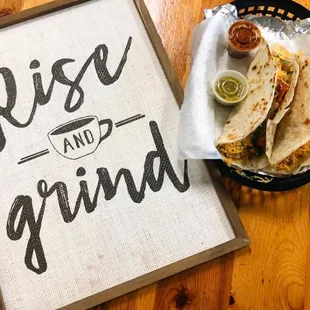 Rise
AND
grind